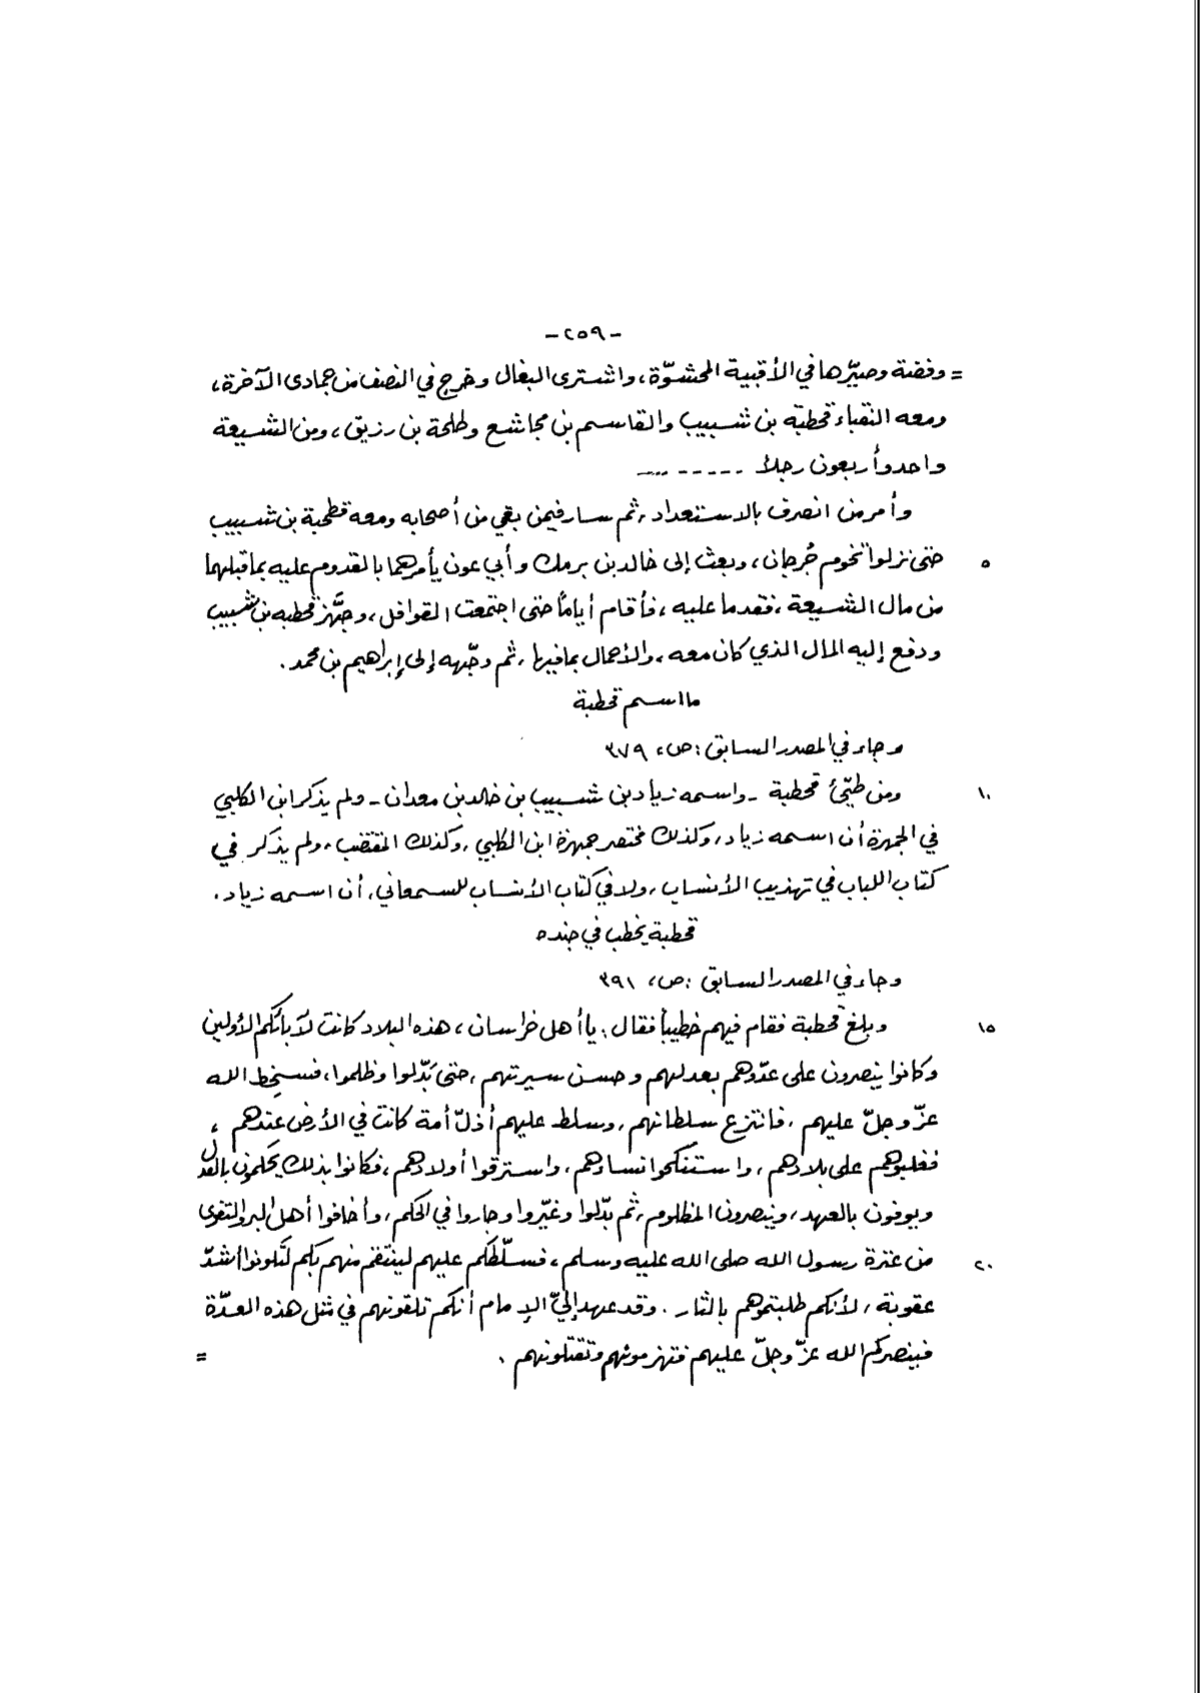 -٢٥٩-
= وفضة وصيّرها في الأقبية المحشوّة، واشترى البغال وخرج في النصف من جمادى الآخرة،
ومعه النقباء قحطبة بن شبيب والقاسم بن مجاشع وطلحة بن رزيق، ومن الشيعة
واحد وأربعون رجلاً ........
وأمر من انصرف بالاستعداد، ثم سار فيمن بقي من أصحابه ومعه قطحبة بن شبيب
٥ حتى نزلوا تخوم جُرجان، وبعث إلى خالد بن برمك وأبي عون يأمرهما بالقدوم عليه بما قبلهما
من مال الشيعة، فقدما عليه، فأقام أياماً حتى اجتمعت القوافل، وجهَّز قحطبه بن شبيب
ودفع إليه المال الذي كان معه، والأحمال بما فيها، ثم وجّهه إلى إبراهيم بن محمد.
ما اسم قحطبة
وجاء في المصدر السابق: ص، ٣٧٩
١٠ ومن طيّئ قحطبة - واسمه زياد بن شبيب بن خالد بن معدان - ولم يذكر ابن الكلبي
في الجمهرة أن اسمه زياد، وكذلك مختصر جمهرة ابن الكلبي، وكذلك المقتضب، ولم يذكر في
كتاب اللباب في تهذيب الأنساب، ولا في كتاب الأنساب للسمعاني، أن اسمه زياد.
قحطبة يخطب في جنده
وجاء في المصدر السابق: ص، ٣٩١
١٥ وبلغ قحطبة فقام فيهم خطيباً فقال: يا أهل خراسان، هذه البلاد كانت لآبائكم الأولين
وكانوا ينصرون على عدّوهم بعدلهم وحسن سيرتهم، حتى بَدّلوا وظلموا، فسخِط الله
عزّ وجلّ عليهم، فانتزع سلطانهم، وسلط عليهم أذلّ أمة كانت في الأرض عندهم،
فغلبوهم على بلادهم، واستنكحوا نساءهم، واسترقوا أولادهم، فكانوا بذلك يحكمون بالعدل
ويوفون بالعهد، وينصرون المظلوم، ثم بدّلوا وغيّروا وجاروا في الحكم، وأخافوا أهل البر والتقوى
٢٠ من عترة رسول الله صلى الله عليه وسلم، فسلّطكم عليهم لينتقم منهم بكم لتكونوا أشدّ
عقوبة، لأنكم طلبتموهم بالثار. وقد عهد إليّ الإمام أنكم تلقونهم في مثل هذه العدّة
فينصركم الله عزّ وجلّ عليهم فتهزمونهم وتقتلونهم. =